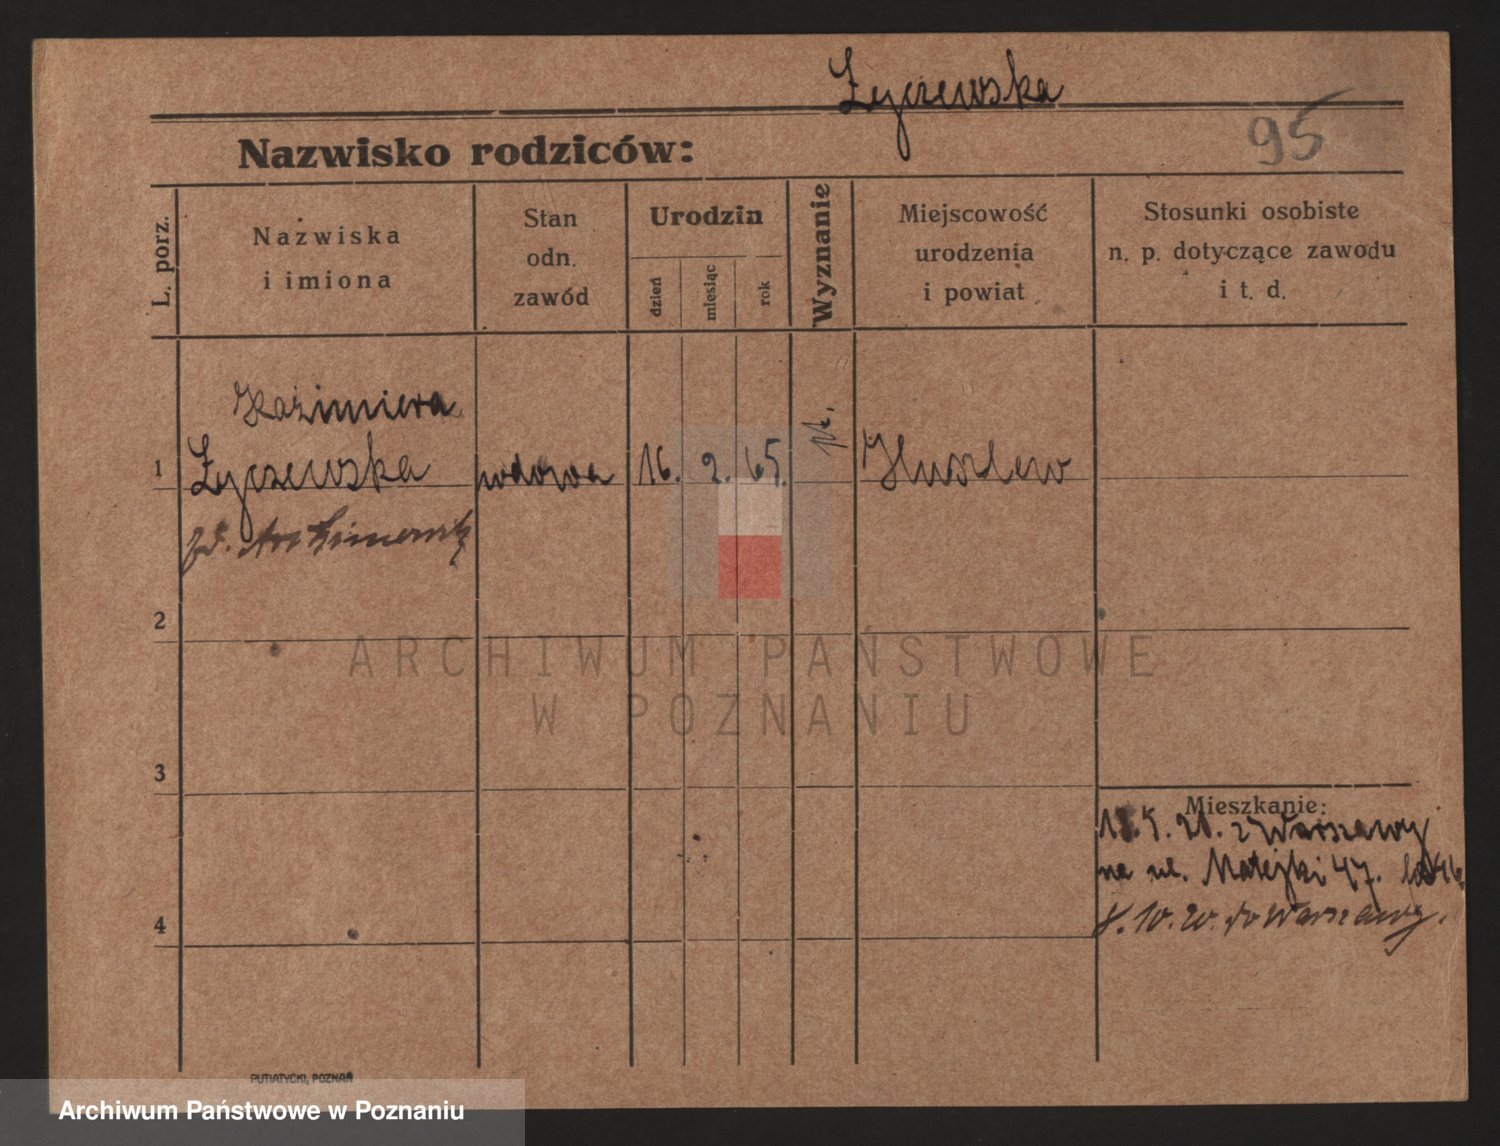 Życzewska
95
Nazwisko rodziców:
L. porz.
Nazwiska
i imiona
Stan
odn.
zawód
Urodzin
dzień
miesiąc
rok
Wyznanie
Miejscowość
urodzenia
i powiat
Stosunki osobiste
n. p. dotyczące zawodu
i t. d.
Kazimiera
1 Życzewska wdowa 16. 2. 65.
2
3
4
Mieszkanie:
z Warszawy
na ul. Matejki 47.
8. 10. 20. do Warszawy.
ARCHIWUM PAŃSTWOWE
W POZNANIU
PUTIATYCKI, POZNAŃ
Archiwum Państwowe w Poznaniu